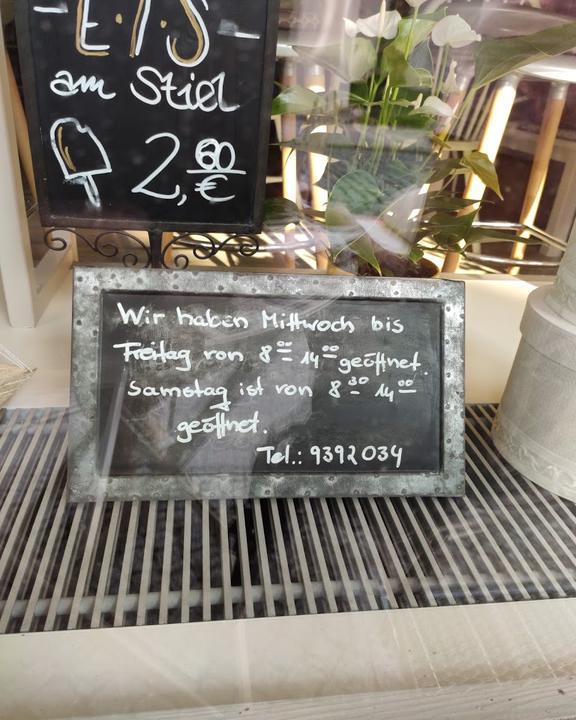 E.I.S
am Stiel
2,60 €
Wir haben Mittwoch bis
Freitag von 8 00 - 14 00 geöffnet.
Samstag ist von 8 30 - 14 00
geöffnet.
Tel.: 9392034